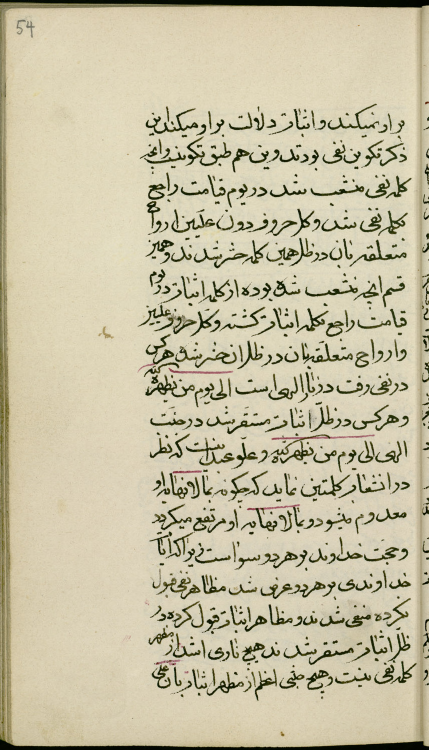 54
بر او نمیکند و اثبات دلالت بر او میکند این
ذکر تکوین نفی بود تدوین هم طبق تکوین و آنچه
کلمه نفی منشعب شد در یوم قیامت راجع
بکلمه نفی شد و کل حروف دون علیین ارواح
متعلقه بان در ظل همین کلمه حشر شدند و همین
قسم آنچه منشعب شده بوده از کلمه اثبات در یوم
قیامت راجع بکلمه اثبات گشته و کل حروف علیین
و ارواح متعلقه بان در ظل ان حشر شد هر کس
در نفی رفت در نار الهی است الی یوم من یظهره الله
و هر کس در ظل اثبات مستقر شد در جنت
الهی الی یوم من یظهره الله و علو عبد این است که نظر
در اشعار کلمتین نماید که چگونه بما لا نهایه او
معدوم میشود و بما لا نهایه او مرتفع میگردد
و حجت خداوند بر هر دو سواست زیرا که آیات
خداوندی بر هر دو عرض شد مظاهر نفی قبول
نکرده منفی شدند و مظاهر اثبات قبول کرده در
ظل اثبات مستقر شدند هیچ ناری اشد از مظهر
کلمه نفی نیست و هیچ جنتی اعظم از مظهر اثبات